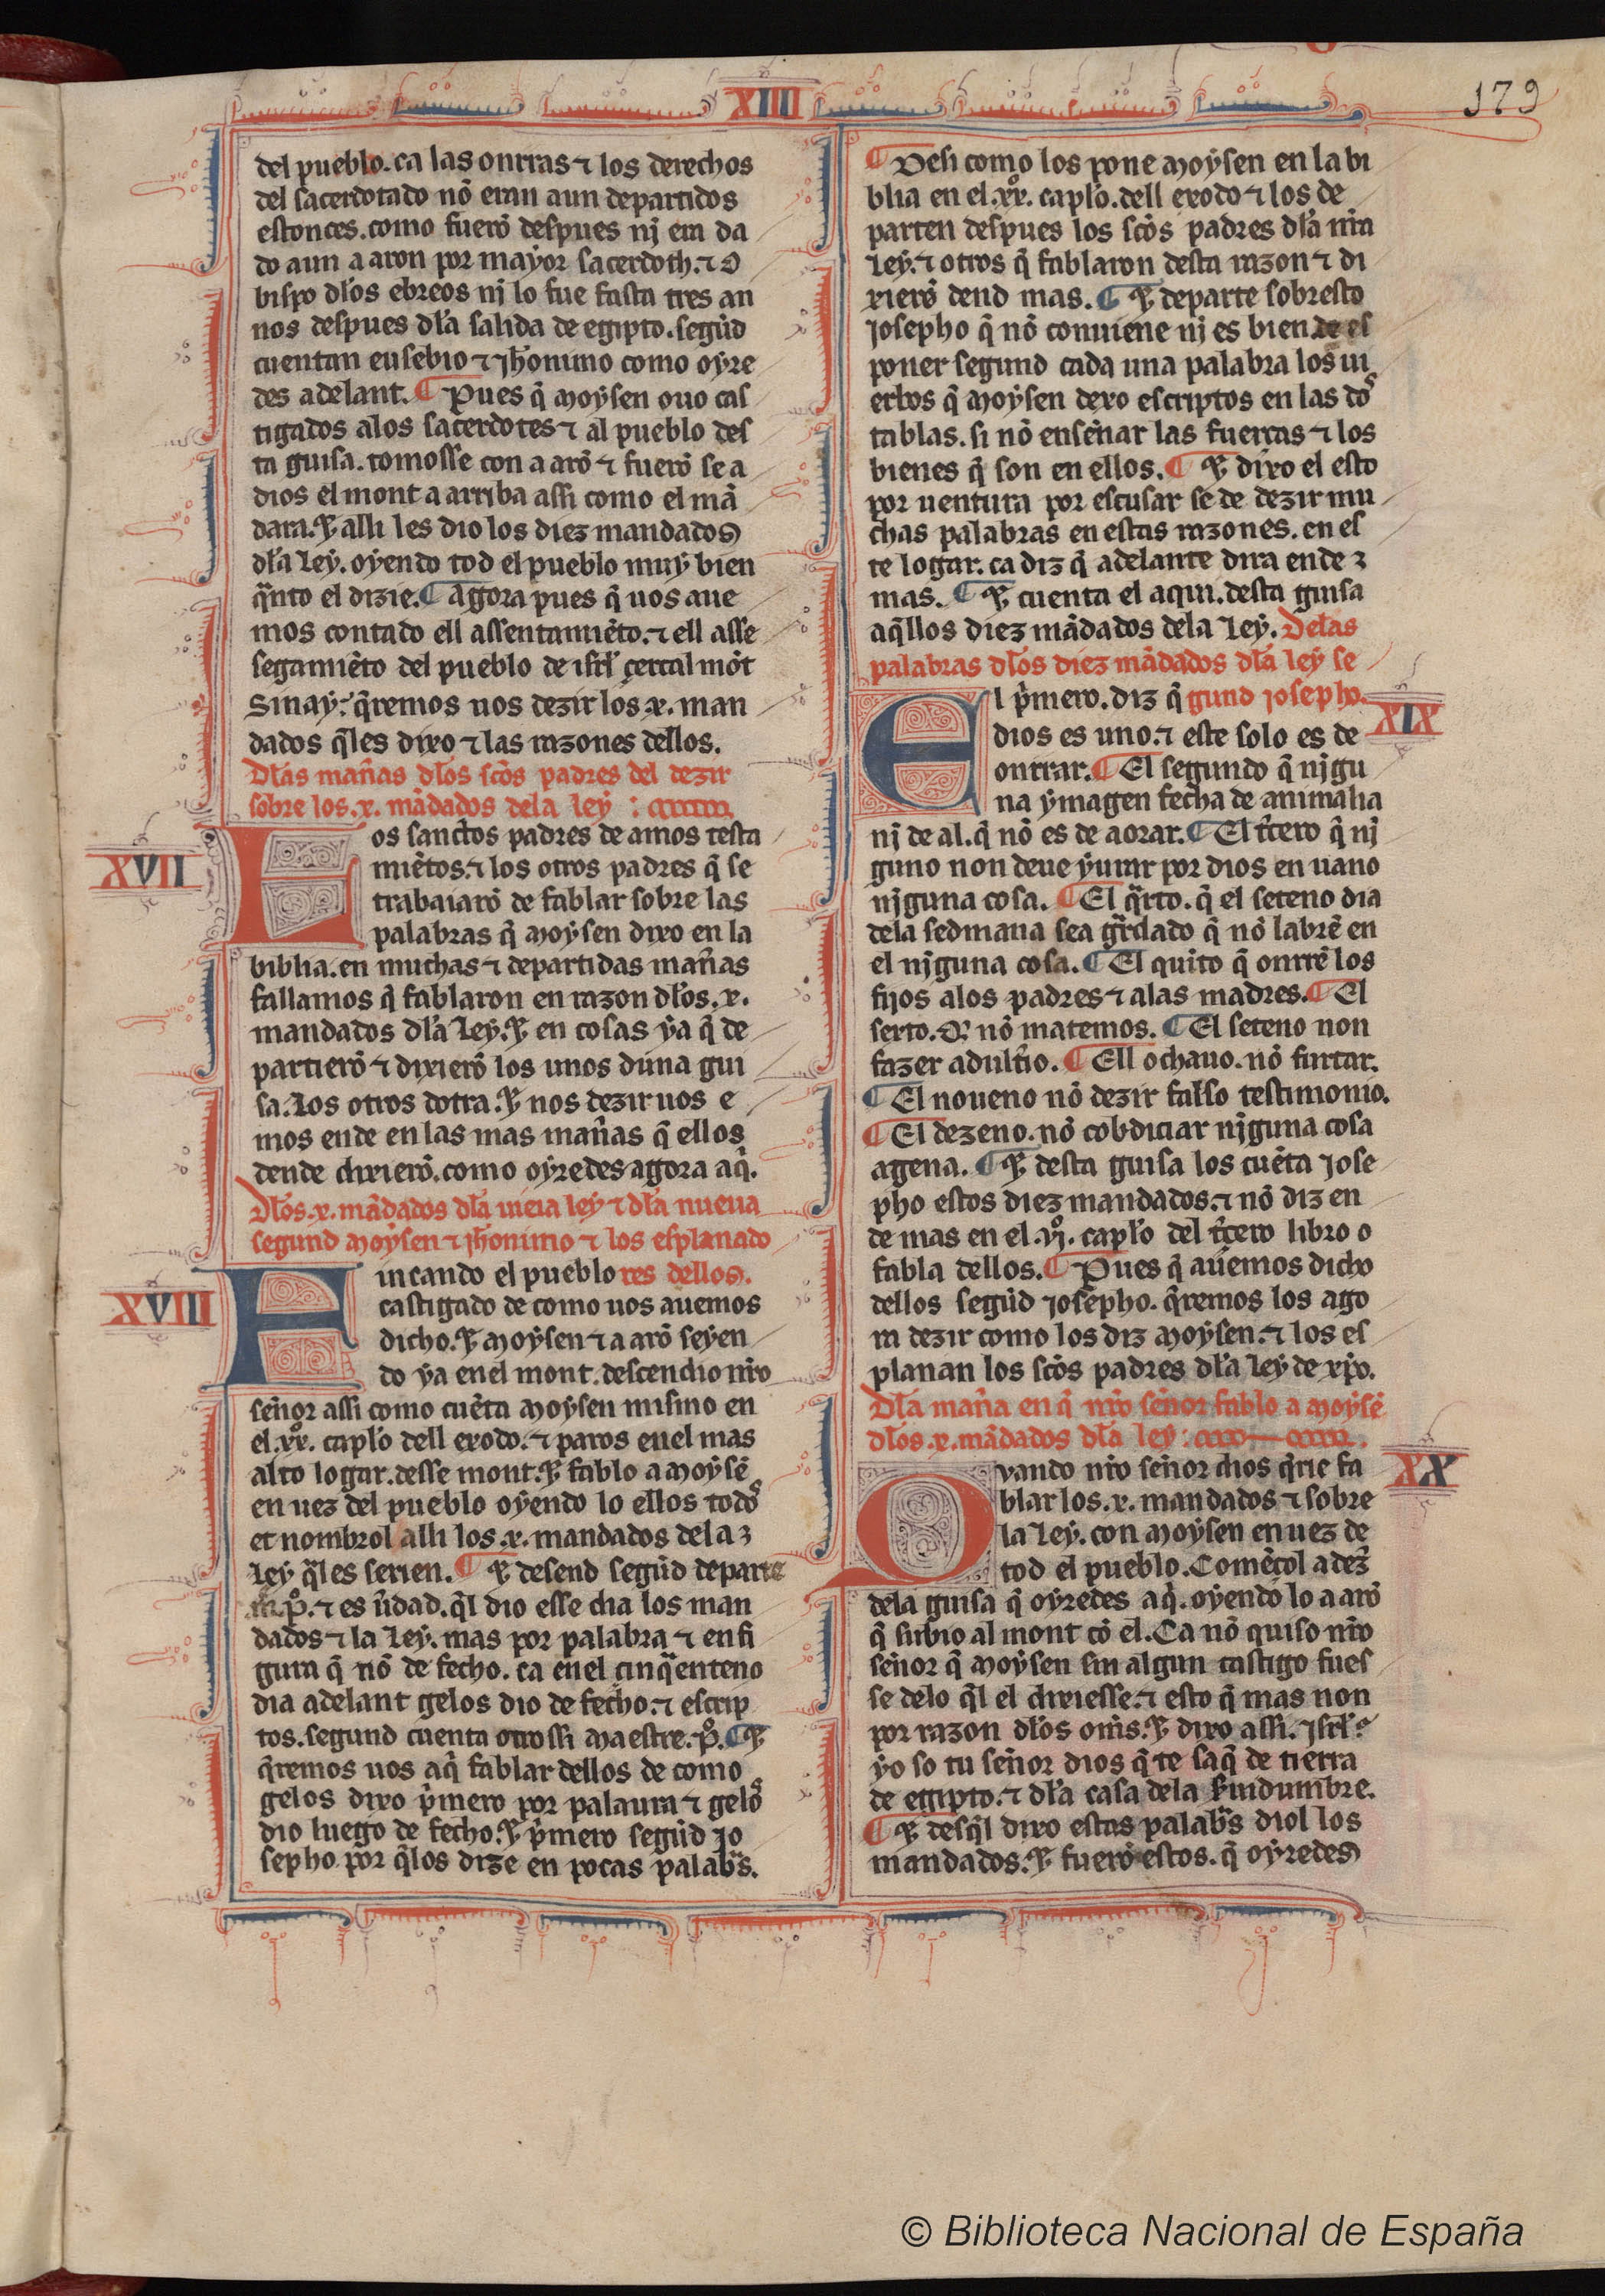 XIIII
179
del pueblo. ca las onrras ⁊ los derechos
del sacerdotado nõ eran aun departidos
estonces. como fuerõ despues nj era da
do aun a aron por mayor sacerdoth. ⁊ O
bispo dłos ebreos nj lo fue fasta tres an
nos despues dła salida de egipto. segũd
cuentan eusebio ⁊ jħonimo como oyre
des adelant. ¶ Pues q̃ moysen ouo cas
tigados alos sacerdotes ⁊ al pueblo des
ta guisa. tomosse con a arõ ⁊ fuerõ se a
dios el mont a arriba assi como el mã
dara. ⁊ alli les dio los diez mandados
dła ley. oyendo tod el pueblo muy bien
q̃nto el dizie. ¶ Agora pues q̃ uos aue
mos contado ell assentamiẽto. ⁊ ell asse
segamiẽto del pueblo de isrł çercal mõt
Sinay: q̃remos uos dezir los .x. man
dados q̃les dixo ⁊ las razones dellos.
Dłas mañas dłos scõs padres del dezir
sobre los .x. mãdados dela ley :
XVII
Los sanctos padres de amos testa
miẽtos. ⁊ los otros padres q̃ se
trabaiarõ de fablar sobre las
palabras q̃ moysen dixo en la
biblia. en muchas ⁊ departidas mañas
fallamos q̃ fablaron en razon dłos .x.
mandados dła ley. ⁊ en cosas ya q̃ de
partierõ ⁊ dixierõ los unos duna gui
sa. los otros dotra. ⁊ nos dezir uos e
mos ende en las mas mañas q̃ ellos
dende dixierõ. como oyredes agora aq̃.
Dłos .x. mãdados dła uieia ley ⁊ dła nueua
segund moysen ⁊ jħonimo ⁊ los esplanado
XVIII
Fincando el pueblo res dellos.
castigado de como uos auemos
dicho. ⁊ moysen ⁊ a arõ seyen
do ya enel mont. descendio nr̃o
señor assi como cuẽta moysen mismo en
el .xxº. capło dell exodo. ⁊ paros enel mas
alto logar. desse mont. ⁊ fablo a moysẽ
en uez del pueblo oyendo lo ellos todos
et nombrol alli los .x. mandados dela
ley q̃les serien. ¶ ⁊ desend segũd departe
m̃. pº. ⁊ es ũdad. q̃l dio esse dia los man
dados ⁊ la ley. mas por palabra ⁊ en fi
gura q̃ nõ de fecho. ca enel cinq̃enteno
dia adelant gelos dio de fecho. ⁊ escrip
tos. segund cuenta otrossi maestre. pº. ¶ ⁊
q̃remos uos aq̃ fablar dellos de como
gelos dixo p̃mero por palaura ⁊ gelos
dio luego de fecho. ⁊ p̃mero segũd Jo
sepho. por q̃los dize en pocas palab̃s.
¶ Desi como los pone moysen en la bi
blia en el .xxº. capło. dell exodo ⁊ los de
parten despues los scõs padres dła nr̃a
ley. ⁊ otros q̃ fablaron desta razon ⁊ di
xierõ dend mas. ¶ ⁊ departe sobresto
Josepho q̃ nõ conuiene nj es bien de es
poner segund cada una palabra los ui
erbos q̃ moysen dexo escriptos en las dos
tablas. si nõ enseñar las fuerças ⁊ los
bienes q̃ son en ellos. ¶ ⁊ dixo el esto
por uentura por escusar se de dezir mu
chas palabras en estas razones. en es
te logar. ca diz q̃ adelante dira ende
mas. ¶ ⁊ cuenta el aqui. desta guisa
aq̃llos diez mãdados dela ley. Delas
palabras dłos diez mãdados dła ley se
El p̃mero. diz q̃ gund josepho.
XIX
dios es uno. ⁊ este solo es de
onrrar. ¶ El segundo q̃ njgu
na ymagen fecha de animalia
nj de al. q̃ nõ es de aorar. ¶ El t̃cero q̃ nj
guno non deue yurar por dios en uano
njguna cosa. ¶ El q̃rto. q̃ el seteno dia
dela sedmana sea gr̃dado q̃ nõ labrẽ en
el njguna cosa. ¶ El quĩto q̃ onrrẽ los
fijos alos padres ⁊ alas madres. ¶ El
sexto. Q̃ nõ matemos. ¶ El seteno non
fazer adult̃io. ¶ Ell ochauo. nõ furtar.
¶ El noueno nõ dezir falso testimonio.
¶ El dezeno. nõ cobdiciar njguna cosa
agena. ¶ ⁊ desta guisa los cuẽta Jose
pho estos diez mandados. ⁊ nõ diz en
de mas en el .vjº. capło del t̃cero libro o
fabla dellos. ¶ Pues q̃ auemos dicho
dellos segũd josepho. q̃remos los ago
ra dezir como los diz moysen. ⁊ los es
planan los scõs padres dła ley de xp̃o.
Dła mañа en q̃ nr̃o señor fablo a moysẽ
dłos .x. mãdados dła ley :
XX
Quando nr̃o señor dios q̃rie fa
blar los .x. mandados ⁊ sobre
la ley. con moysen en uez de
tod el pueblo. Comẽçol a dez̃
dela guisa q̃ oyredes aq̃. oyendo lo a arõ
q̃ subio al mont cõ el. Ca nõ quiso nr̃o
señor q̃ moysen sin algun castigo fues
se delo q̃l el dixiesse. ⁊ esto q̃ mas non
por razon dłos om̃s. ⁊ dixo assi. Jsrł
yo so tu señor dios q̃ te saq̃ de tierra
de egipto. ⁊ dła casa dela s̃uidumbre.
¶ ⁊ desq̃l dixo estas palab̃s diol los
mandados. ⁊ fuerõ estos. q̃ oyredes
© Biblioteca Nacional de España